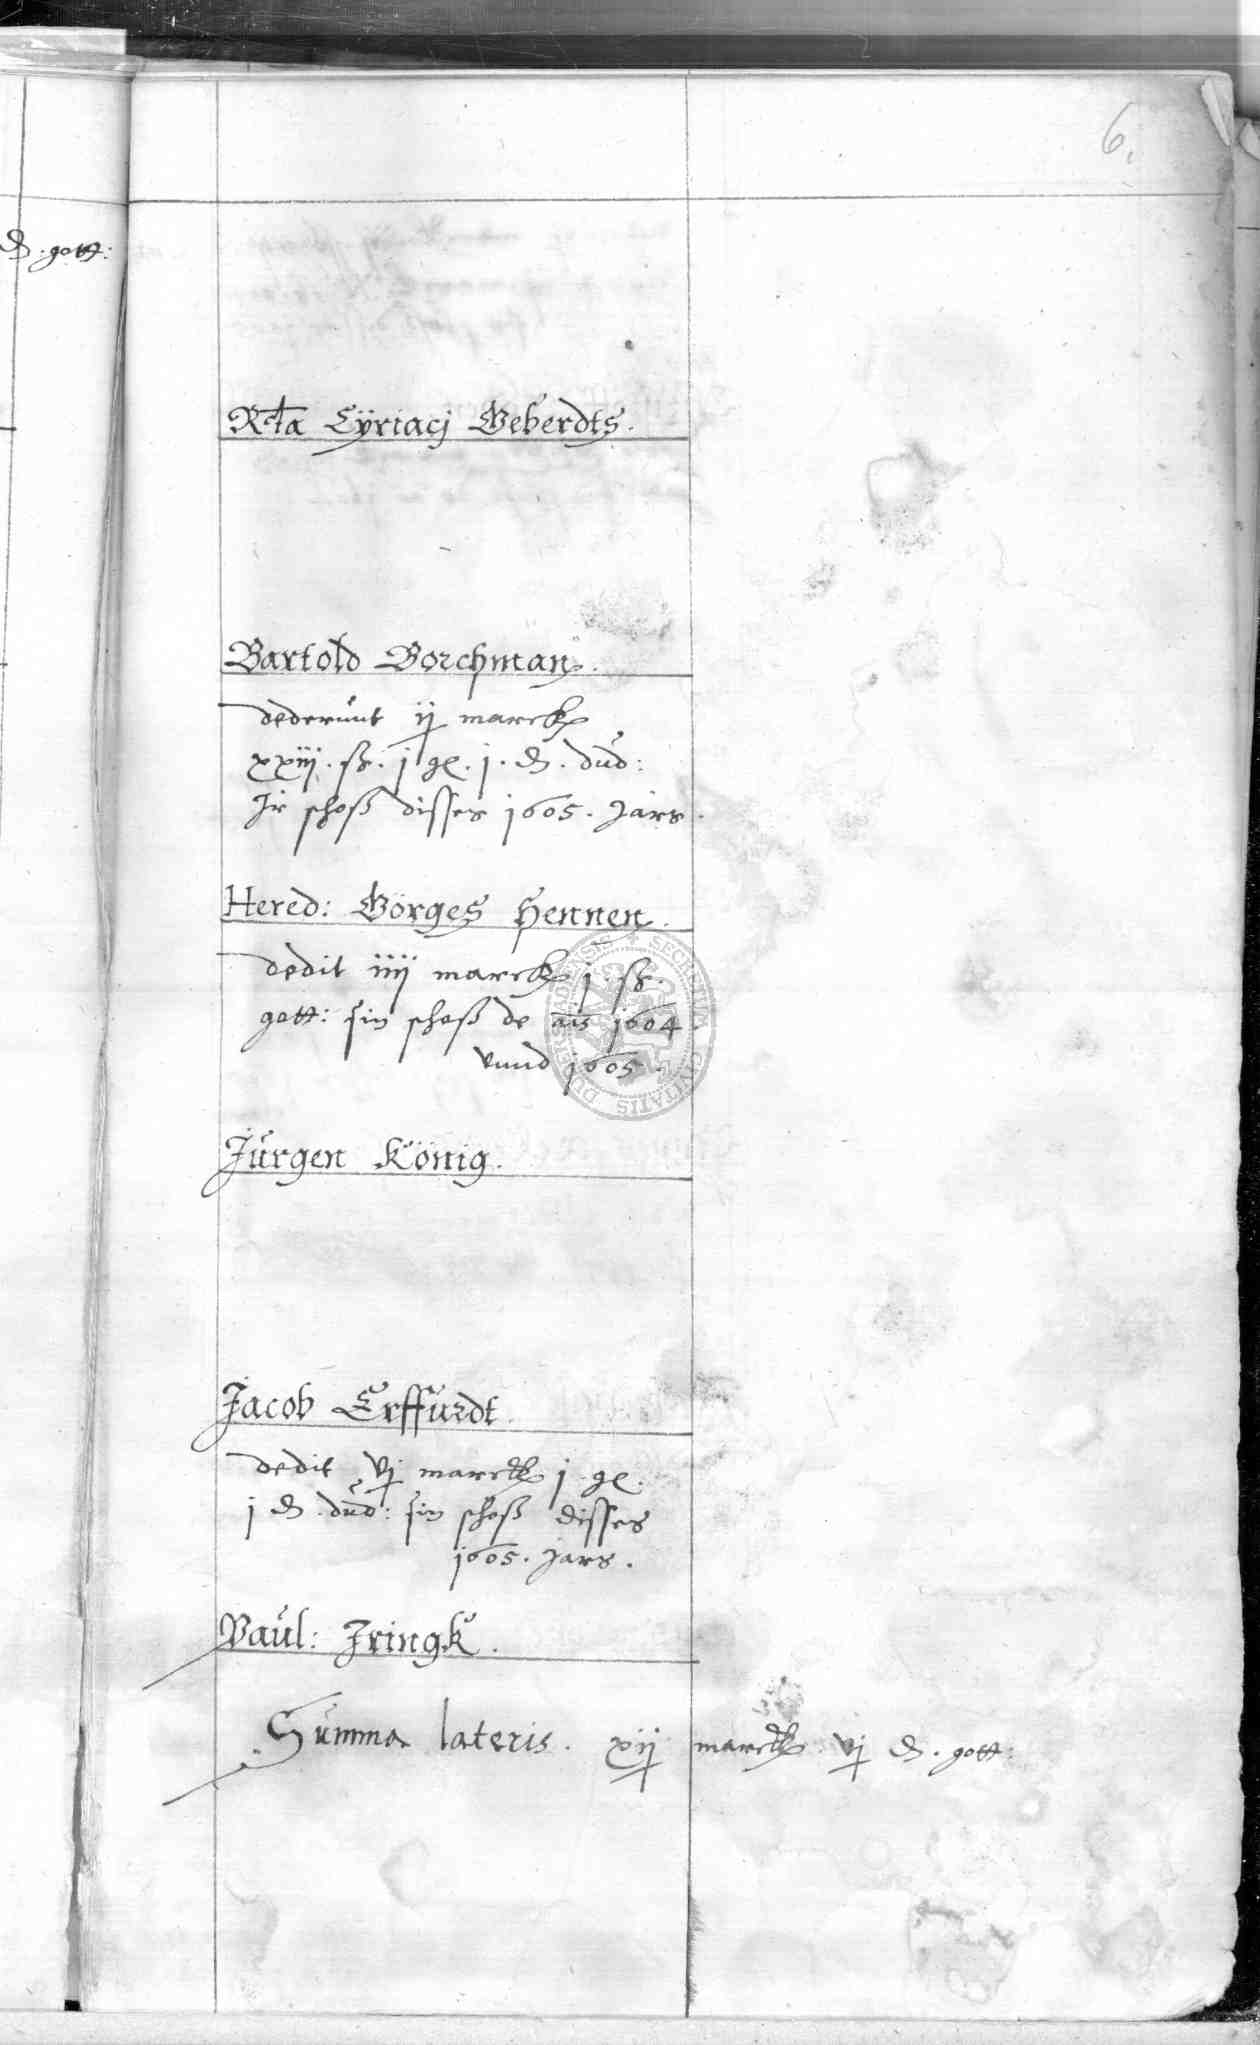 6.
₰. gott:
Rcta Cÿriacj Geberdts.
Bartold Borchman.
dederunt ij marck
xxiij. ß. j gl. j. ₰. dud:
Jr schoß disses 1605. Jars.
Hered: Görges Hennen.
dedit iiij marck j. ß.
gott: sin schoß de aīs 1604.
vnnd 1605.
Jürgen König.
Jacob Erffurdt.
dedit vj marck j gl.
j ₰. dud: sin schoß disses
1605. Jars.
Paul: Iringk.
Summa lateris. xij marck. vj ₰. gott:
SECRETUM CIVITATIS DUDERSTADENSIS